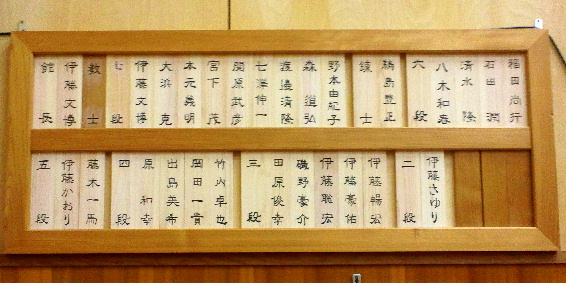 館長
伊藤文博
教士
七段
伊藤文博
大浜克
本元義明
宮下茂
関原武彦
七澤伸一
渡邉清隆
森道弘
野本由紀子
錬士
豊正
六段
八木和寿
清水隆
石田潤
稲田尚行
五段
伊藤かおり
藤木一馬
四段
原和幸
出島英希
岡田一貴
竹内卓也
三段
田原俊幸
磯野豪介
伊藤聡宏
伊藤豪佑
伊藤暢宏
二段
伊藤さゆり